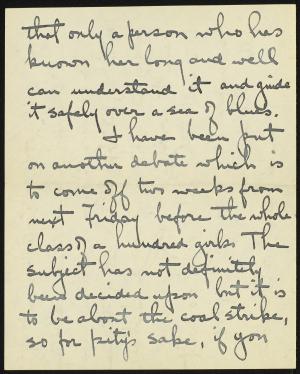 that only a person who has
known her long and well
can understand it and guide
it safely over a sea of blues.
I have been put
on another debate which is
to come off two weeks from
next Friday before the whole
class of a hundred girls. The
subject has not definitely
been decided upon but it is
to be about the coal strike,
so for pity's sake, if you